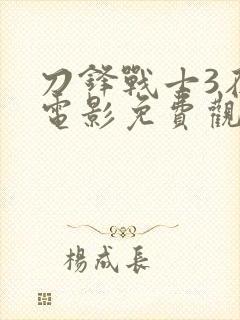 刀鋒戰士3
電影免費觀
楊成長